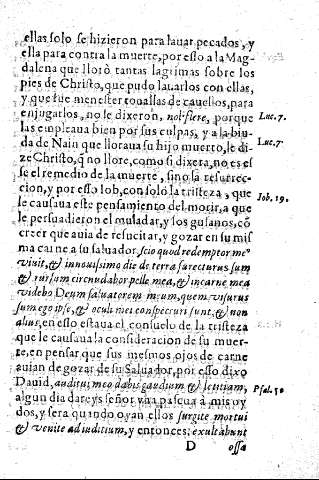 ellas solo se hizieron para lauar pecados, y
ella para contra la muerte, por esso a la Mag-
dalena que llorò tantas lagrimas sobre los
pies de Christo, que pudo lauarlos con ellas,
y que fue menester touallas de cauellos, para
enjugarlos, no le dixeron, noli flere, porque
Luc. 7.
las empleaua bien por sus culpas, y a la biu-
da de Nain que lloraua su hijo muerto, le di-
Luc. 7.
ze Christo, q̃ no llore, como si dixera, no es es
se el remedio de la muerte, sino la resurrec-
cion, y por esso Iob, con solo la tristeza, que
Iob. 19.
le causaua este pensamiento del morir, a que
le persuadieron el muladar, y los gusanos, cõ
creer que auia de resucitar, y gozar en su mis
ma carne a su saluador, scio quod redemptor me⁹
viuit, & in nouissimo die de terra surecturus sum
& rursum circundabor pelle mea, & in carne mea
videbo Deum saluatorem meum, quem visurus
sum ego ipse, & oculi mei conspecturi sunt, & non
alius, en esso estaua el consuelo de la tristeza
que le causaua la consideracion de su muer-
te, en pensar que sus mesmos ojos de carne
auian de gozar de su Saluador, por esso dixo
Dauid, auditui meo dabis gaudium & letitiam,
Psal. 50
algun dia dareys señor vna pascua à mis oy
dos, y sera quando oyan ellos surgite mortui
& venite ad iuditium, y entonces, exultabunt
D ossa